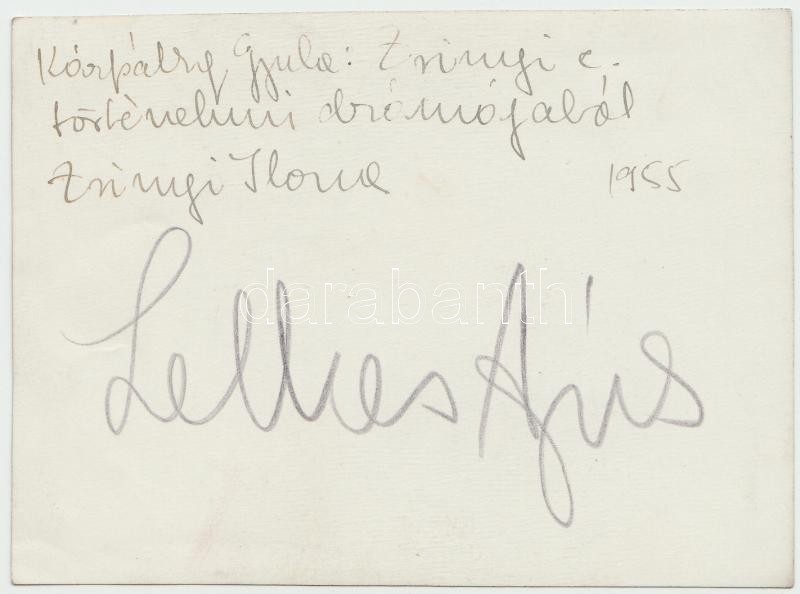 Kárpáthy Gyula: Zrinyi c.
történelmi drámájából
Zrinyi Ilona 1955
darabanth
Lelkes Ágnes